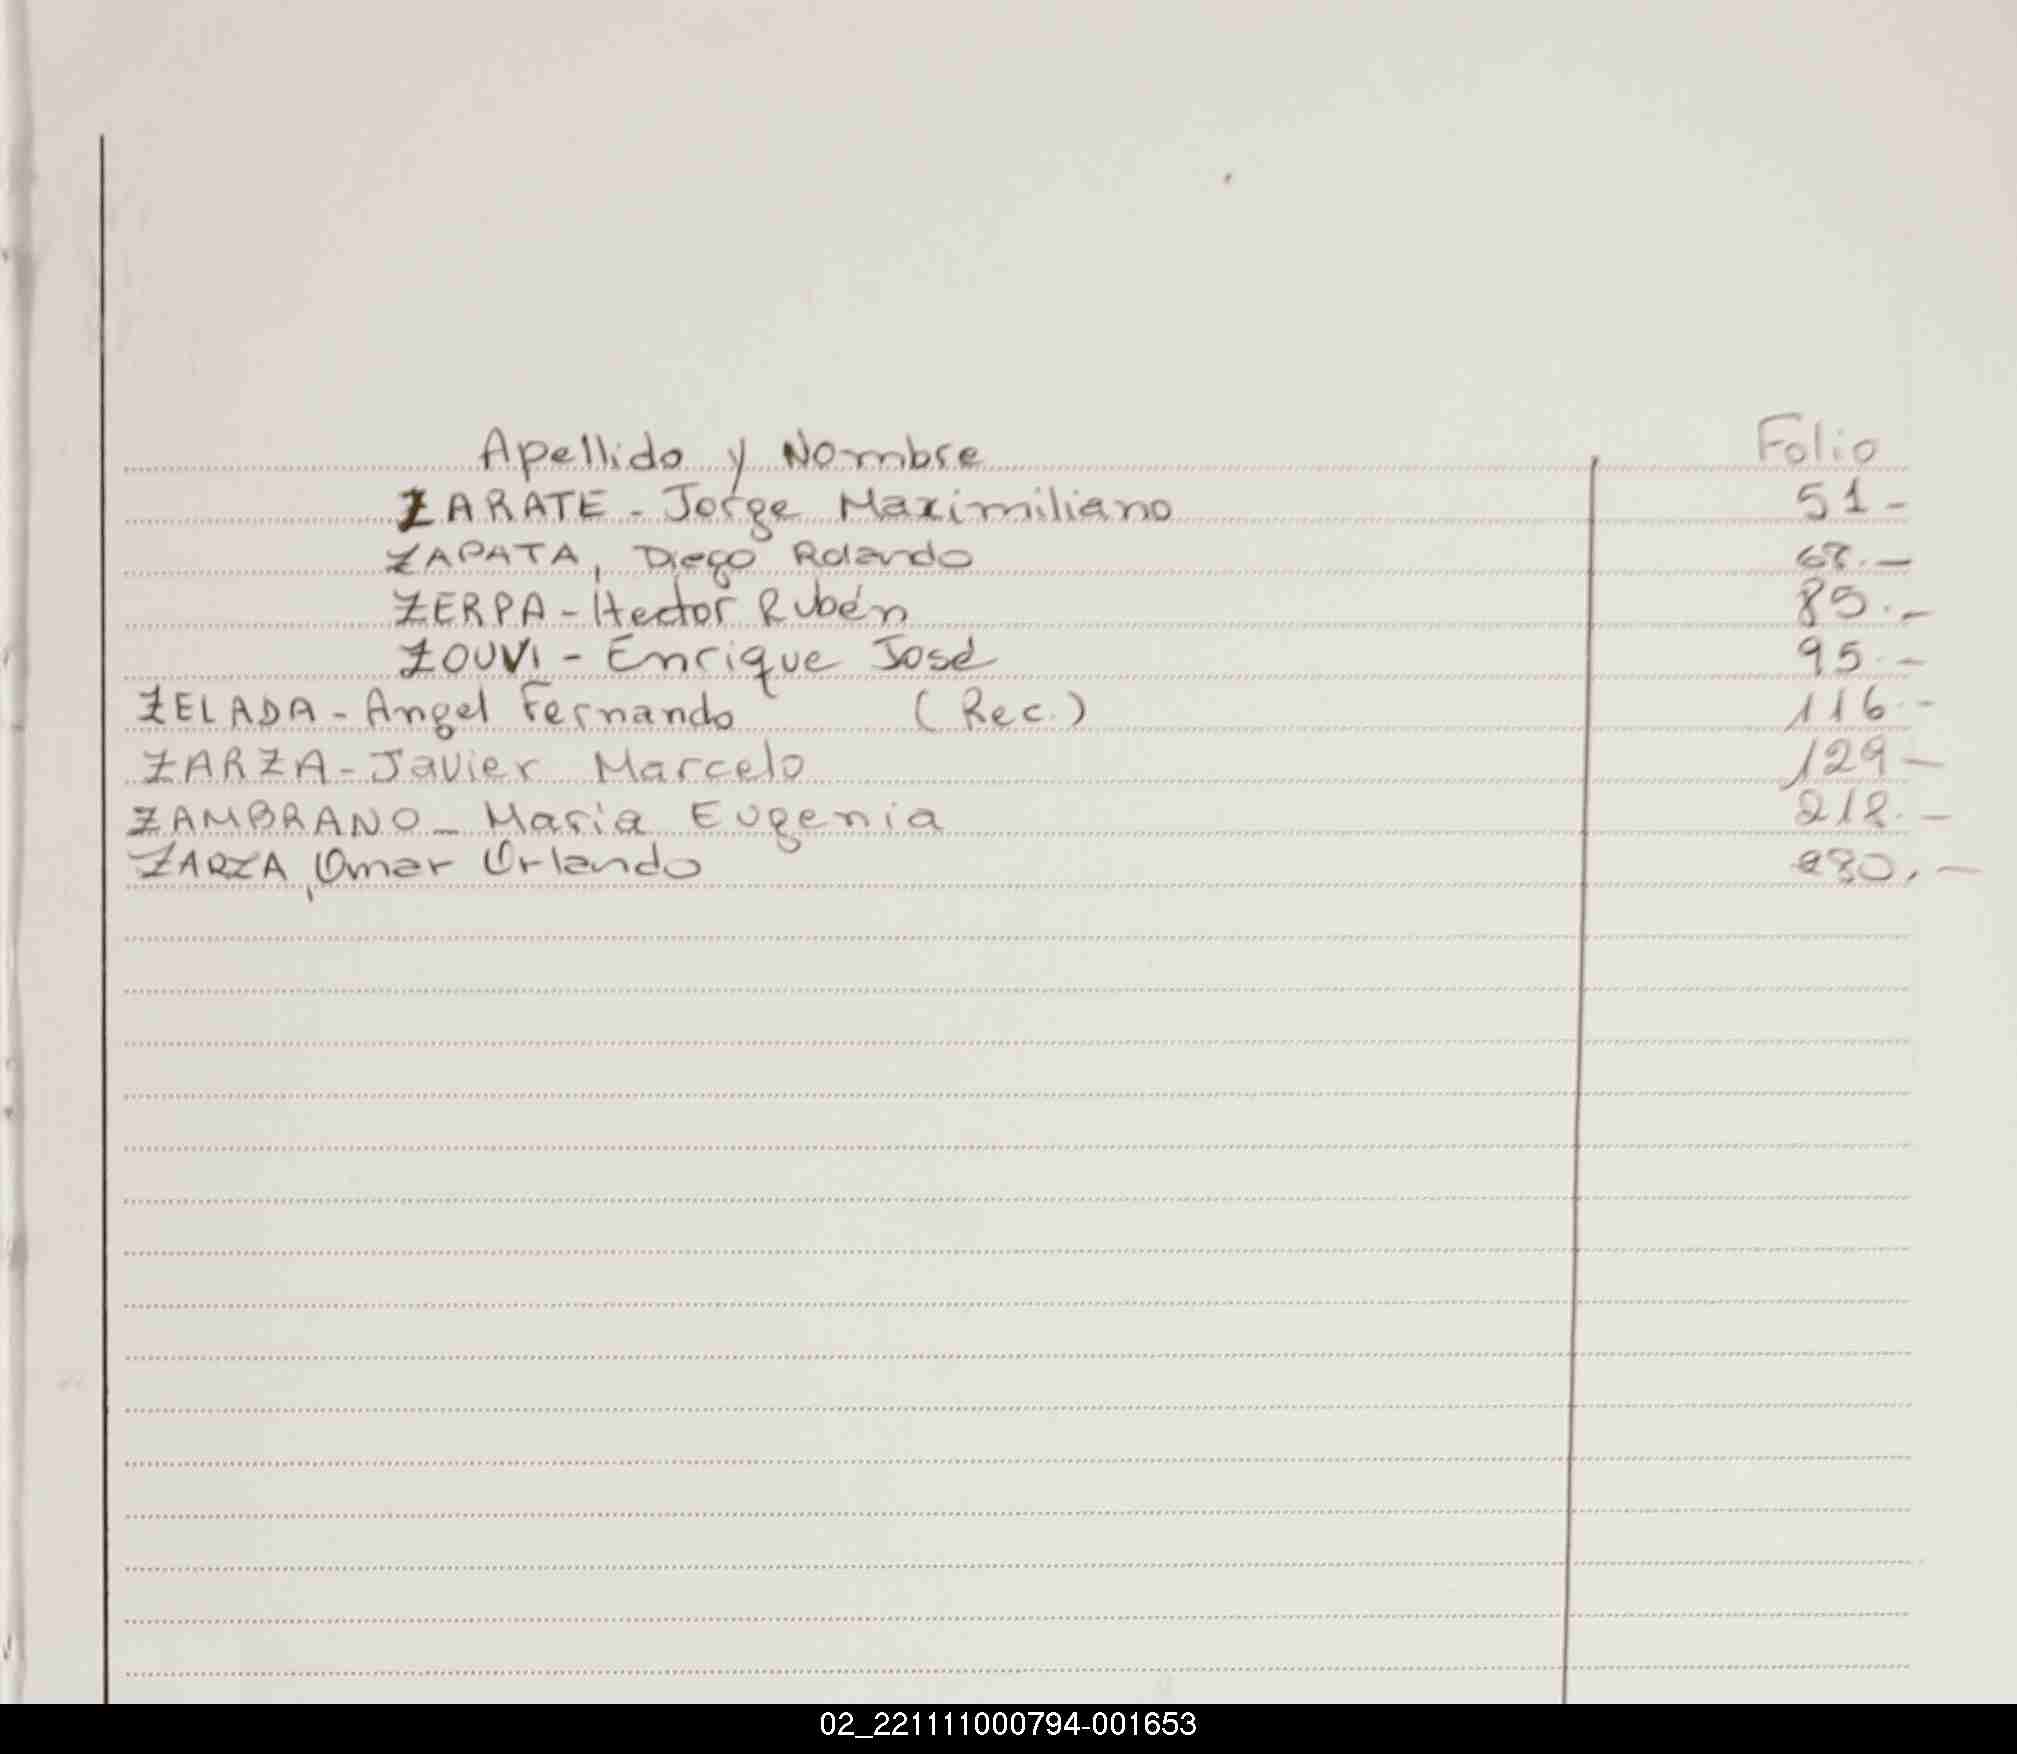 Apellido y Nombre Folio
ZARATE - Jorge Maximiliano 51-
ZAPATA, Diego Rolando 68.-
ZERPA - Hector Rubén 85.-
ZOUVI - Enrique José 95.-
ZELADA - Angel Fernando (Rec.) 116.-
ZARZA - Javier Marcelo 129-
ZAMBRANO - Maria Eugenia 218.-
ZARZA, Omar Orlando
02_221111000794-001653